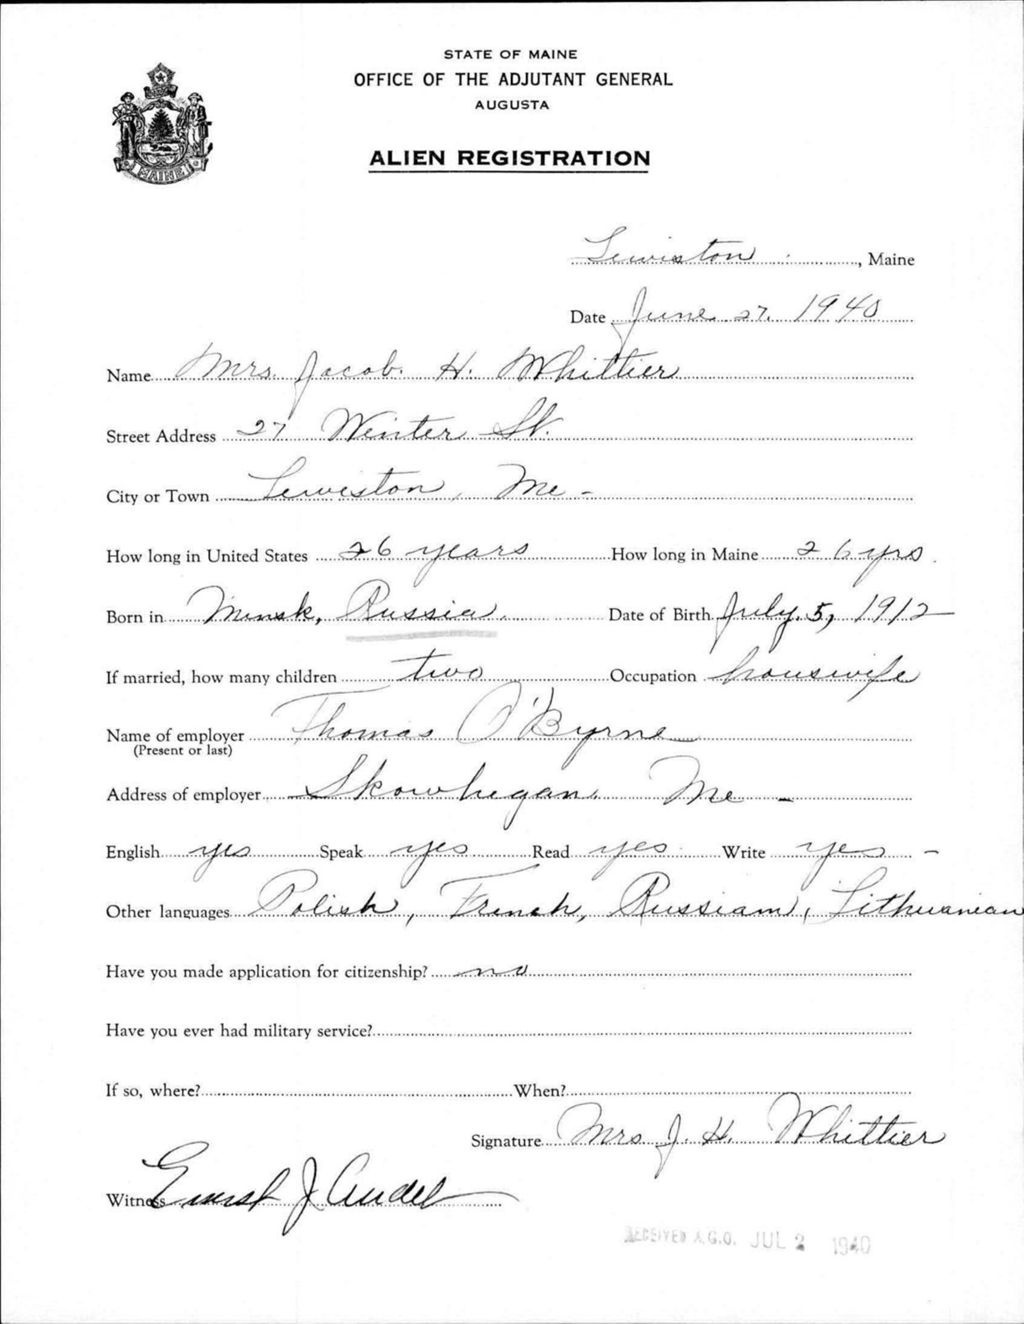 STATE OF MAINE
OFFICE OF THE ADJUTANT GENERAL
AUGUSTA
ALIEN REGISTRATION
MAINE
Lewiston, Maine
Date June 27, 1940
Name Mrs. Jacob. H. Whittier
Street Address 27 Winter St.
City or Town Lewiston, Me -
How long in United States 26 years How long in Maine 26 yrs.
Born in Minsk, Russia. Date of Birth July 5, 1912
If married, how many children two Occupation housewife
Name of employer Thomas O'Byrne
(Present or last)
Address of employer Skowhegan, Me -
English yes Speak yes Read yes Write yes -
Other languages Polish, French, Russian, Lithuanian
Have you made application for citizenship? no
Have you ever had military service?
If so, where? When?
Signature Mrs J. H. Whittier
Witness Ernest J
RECEIVED A.G.O. JUL 2 1940